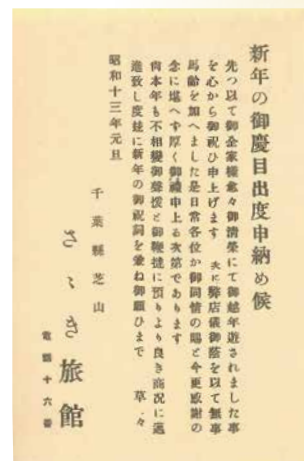 新年の御慶目出度申納め候
先つ以て御全家様愈々御清榮にて御越年遊されました事
を心から御祝ひ申上げます 次に弊店儀御蔭を以て無事
馬齢を加へました是日常各位か御同情の賜と今更感謝の
念に堪へす厚く御禮申上る次第であります
尚本年も不相變御聲援と御鞭撻に預りより良き商況に邁
進致し度玆に新年の御祝詞を兼ね御願ひまで 草々
昭和十三年元旦
千葉縣芝山
さゝき旅館
電話十六番